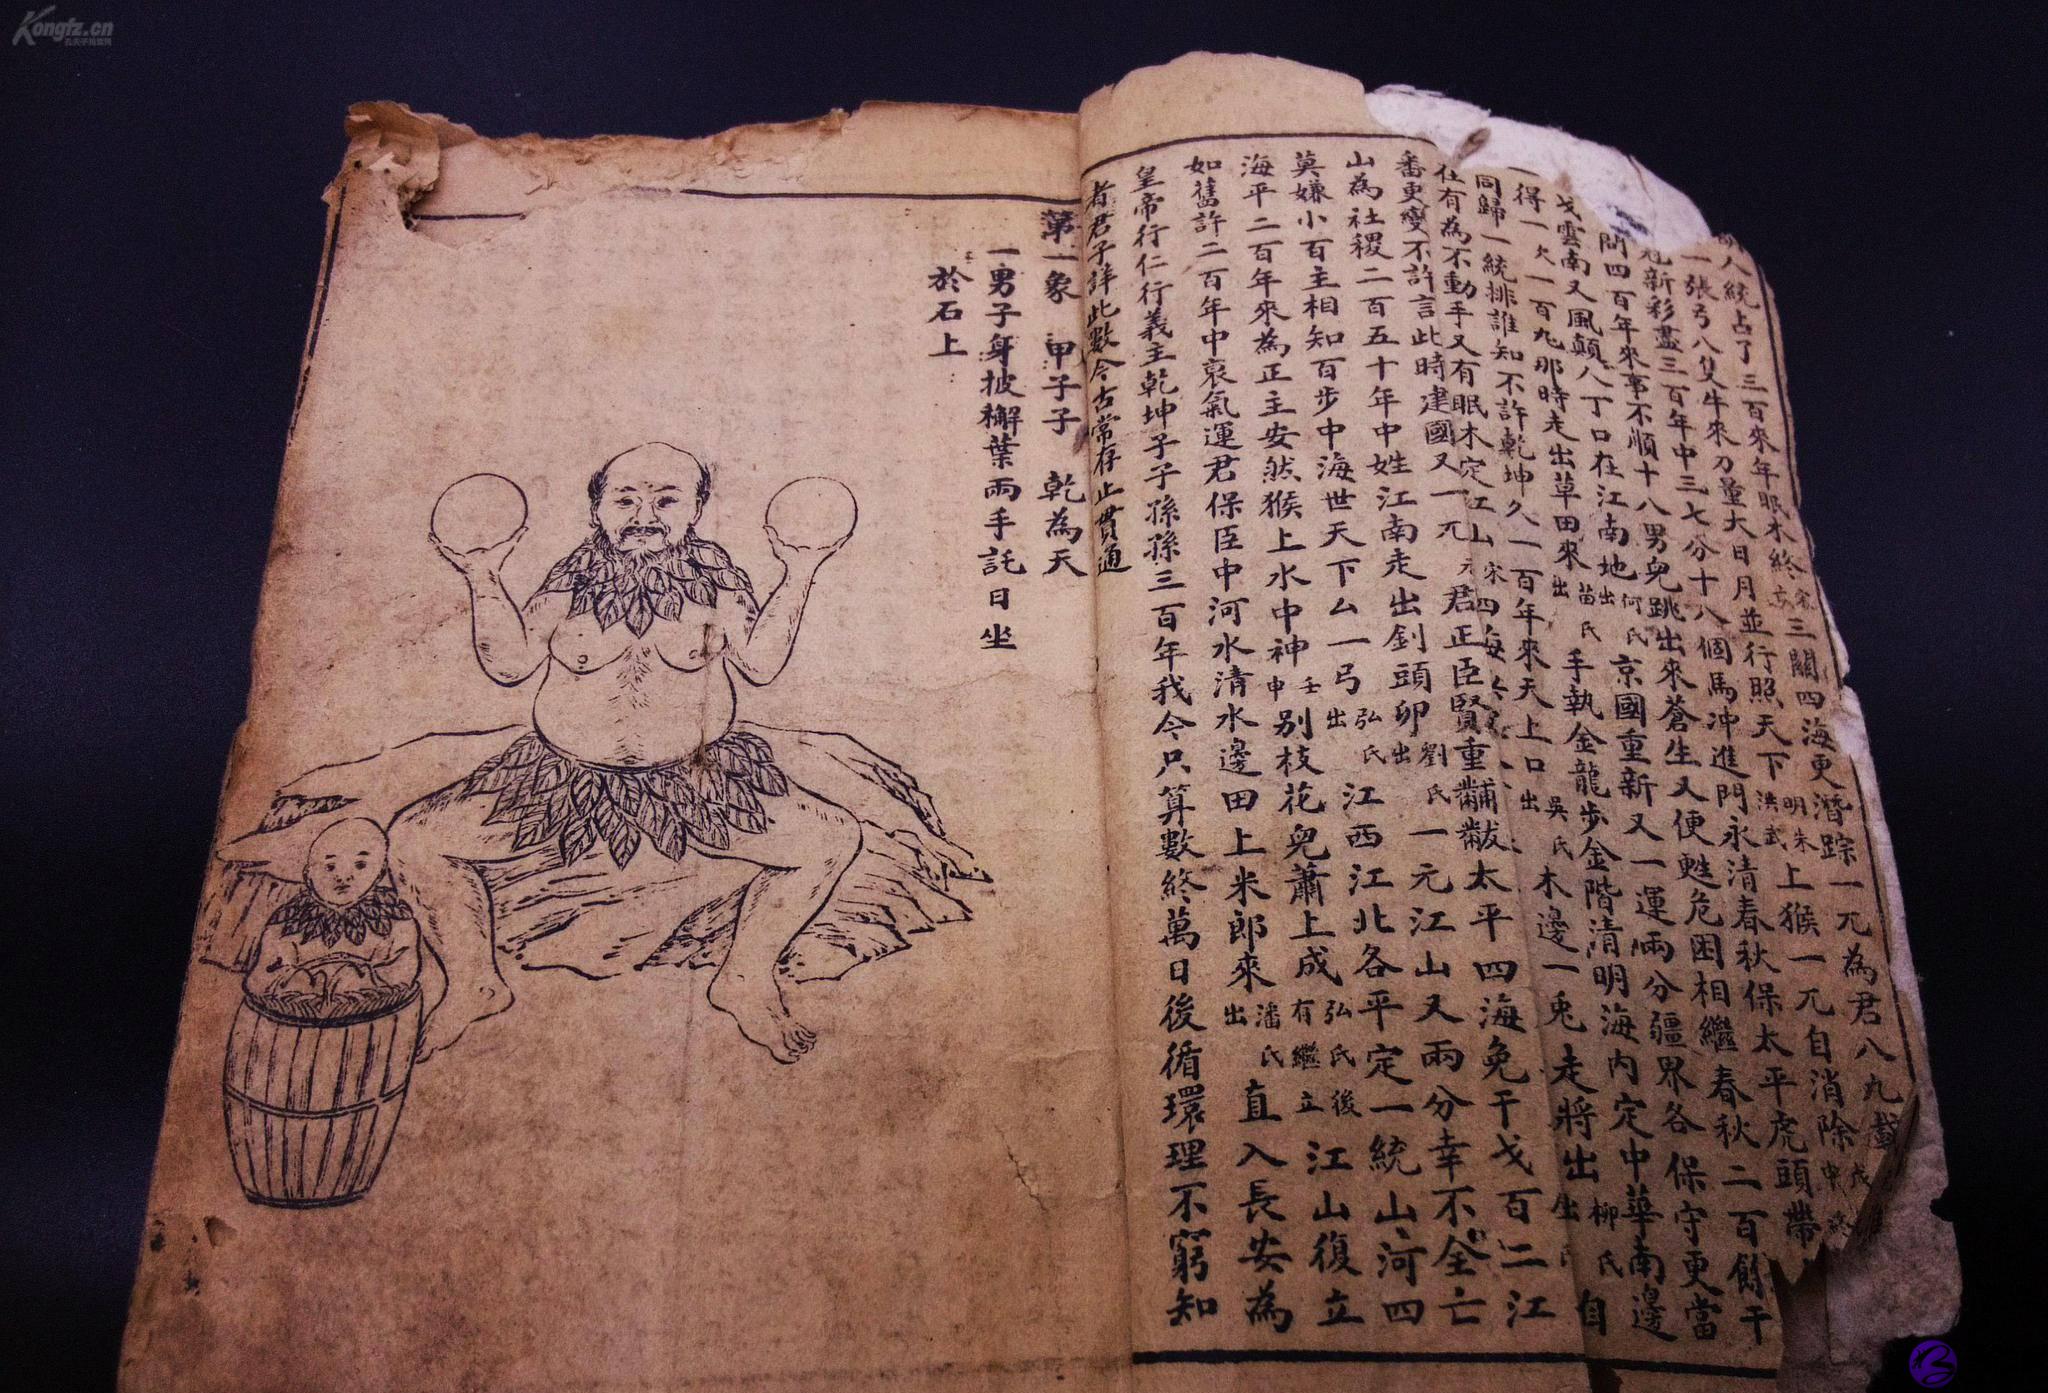 Kongfz.cn
統占了三百來年眠木終
三關四海更潛踪一兀為君八九
一張弓八隻牛來刀量大日月並行照天下洪武
明朱
上猴一兀自消除
新彩畫三百年中三七分十八個馬冲進門永清春秋保太平虎頭帶
問四百年來事不順十八男兒跳出來蒼生又便甦危困相繼春秋二百餘干
戈雲南又風顛八丁口在江南地出
何氏
京國重新又一運兩分疆界各保守更當
得一欠一百九那時走出草田來出
苗氏
手執金龍步金階清明海内定中華南邊
同歸一統排誰知不許乾坤久一百年來天上口出
吳氏
木邊一兎走將出
柳氏
自
在有為不動手又有眠木定江山
君正臣賢重黼黻太平四海免干戈百二江
番更變不許言此時建國又一兀
劉氏
一元江山又兩分幸不全亡
山為社稷二百五十年中姓江南走出釗頭卯出
江西江北各平定一統山河四
莫嫌小百主相知百步中海世天下厶一弓出
弘氏
弘氏後
有繼立
江山復立
海平二百年來為正主安然猴上水中神
壬申
別枝花兒蕭上成
直入長安為
如舊許二百年中衰氣運君保臣中河水清水邊田上米郎來出
潘氏
皇帝行仁行義主乾坤子子孫孫三百年我今只算數終萬日後循環理不窮知
者君子詳此數今古常存止貫通
第一象 甲子子 乾為天
一男子身披檞葉兩手託日坐
於石上